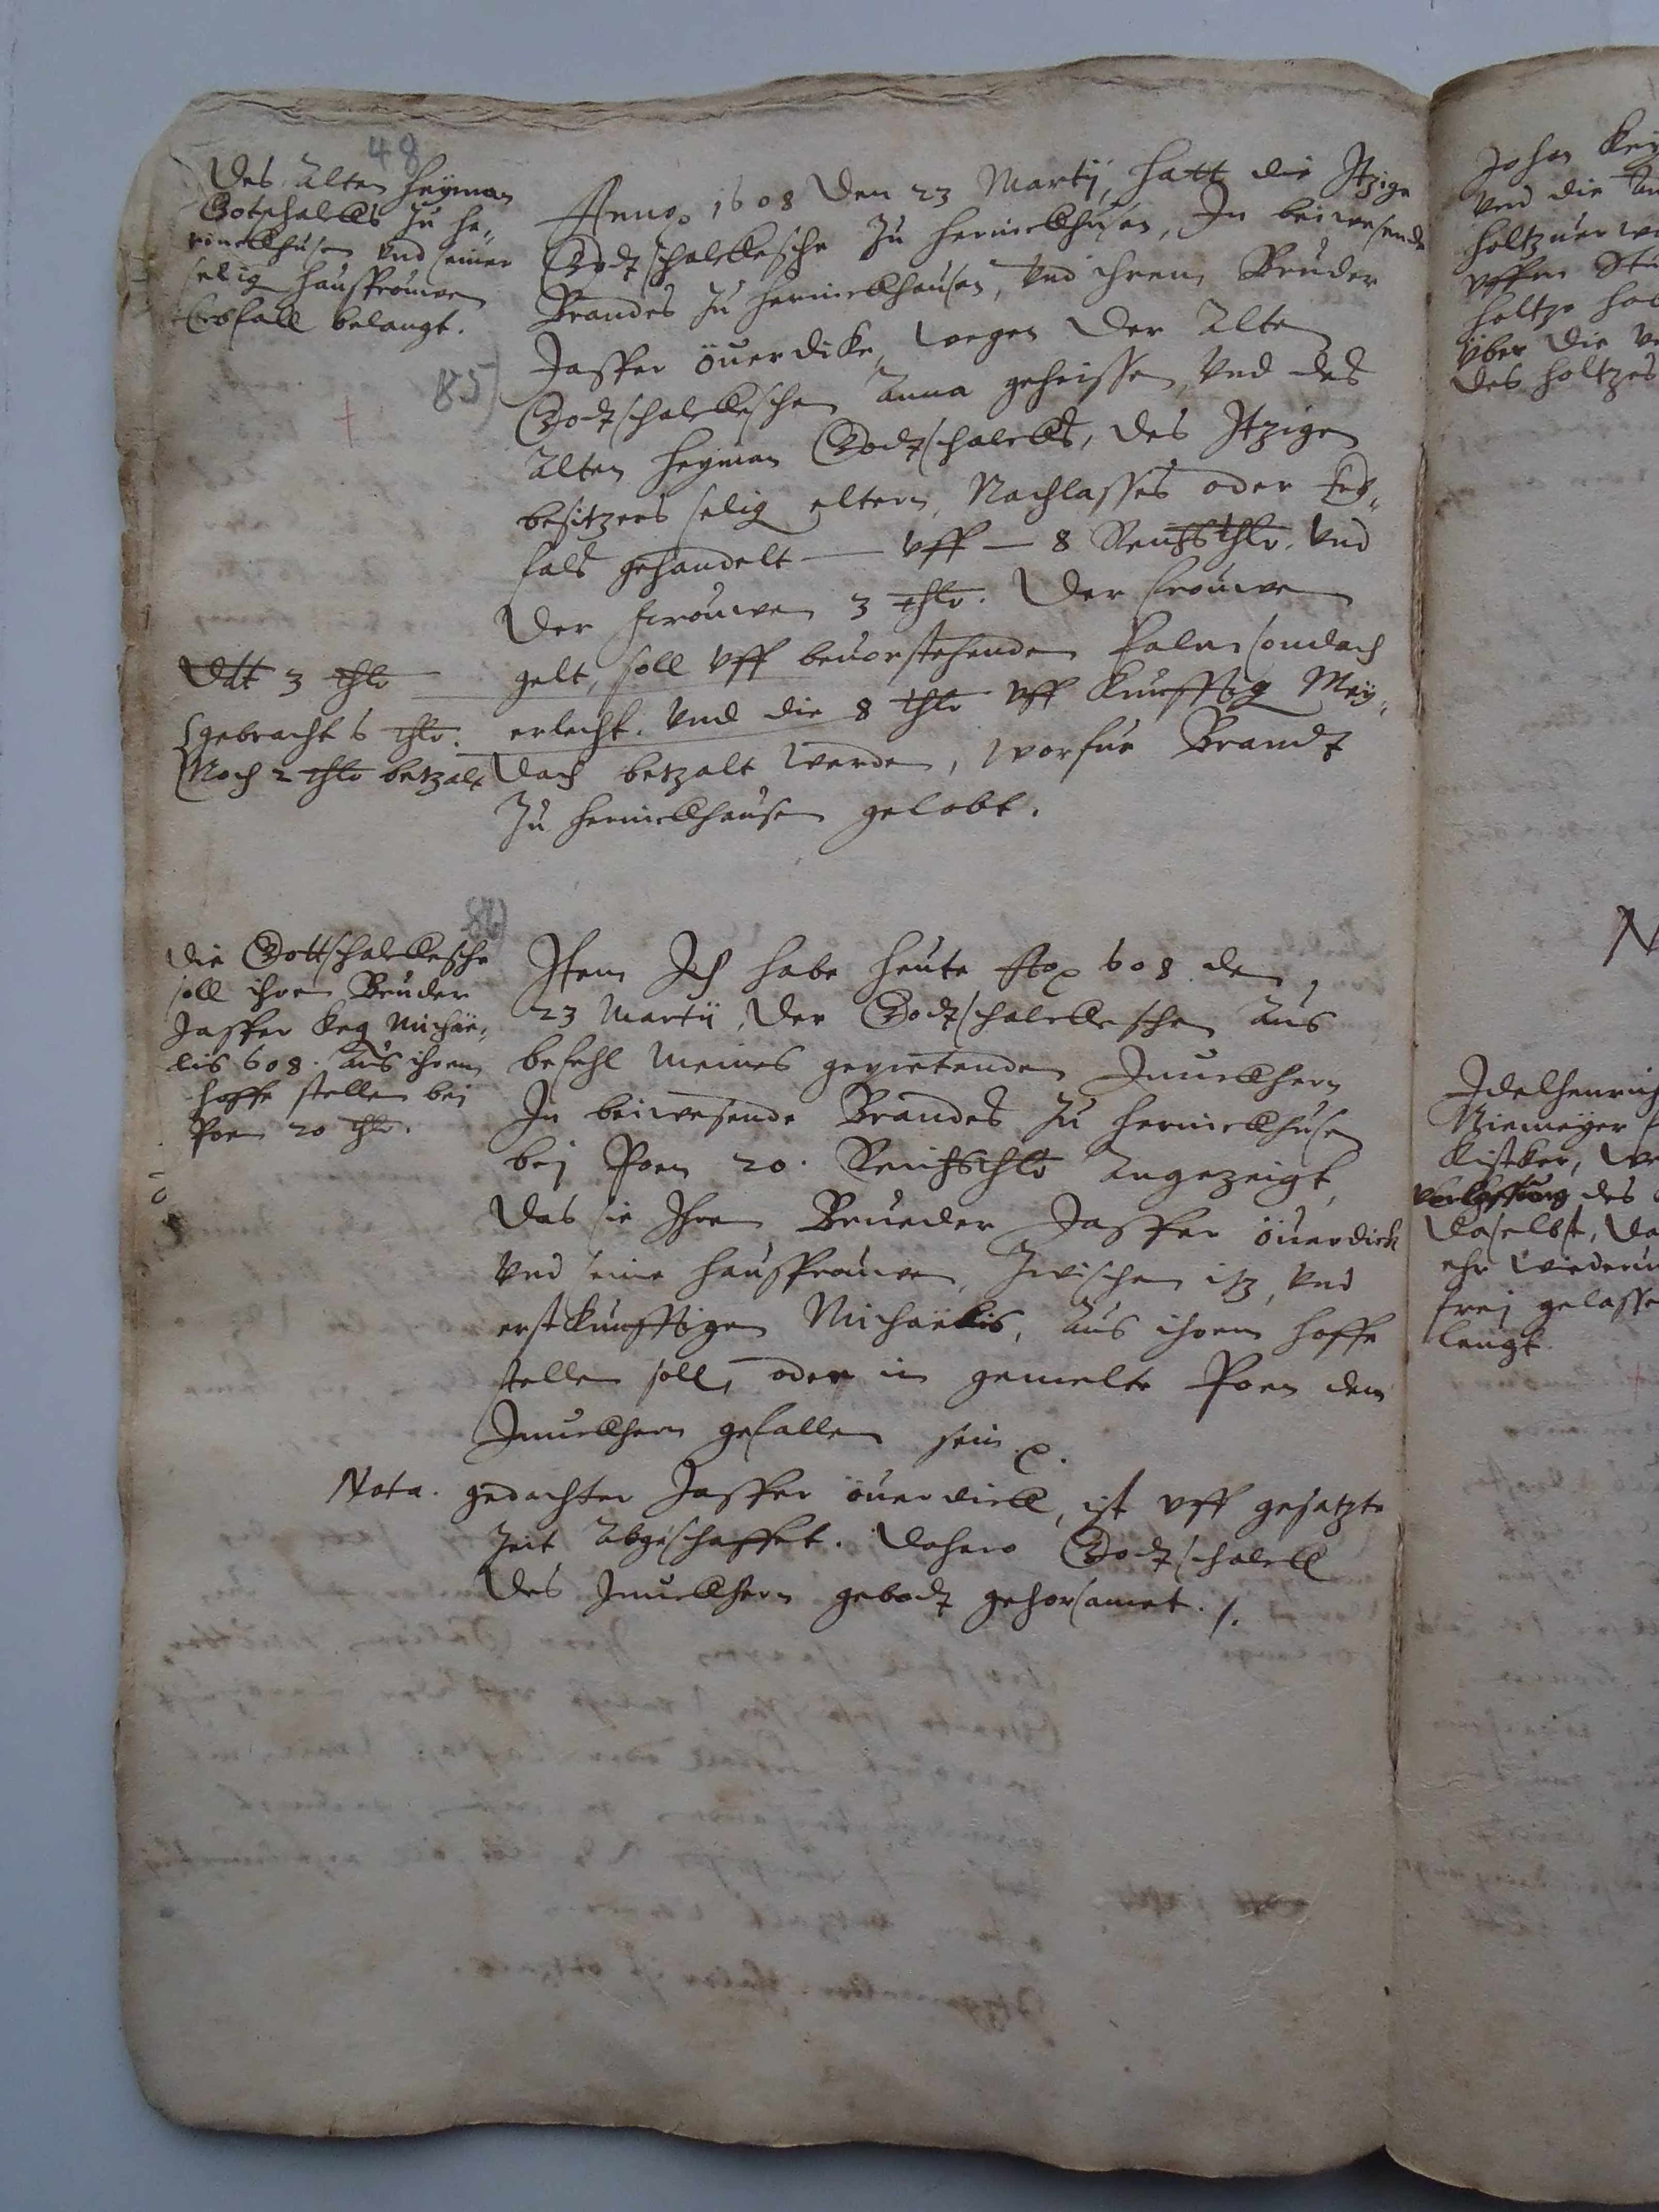 48
Des Alten Heÿman
Gotschalcks Zu he,
rinckhusen vnd seiner
selig haußfrouwen
Erbfall belangt.
85)
Anno 1608 Den 23 Martÿ, hatt die Itzige
Godtschalckesche Zu herinckhusen, In beiwesende
Brandes Zu herinckhausen, vnd ihrem Bruder
Jasper öuerdicke, wegen der Alten
Godtschalckeschen Anna geheissen, vnd des
Alten Heyman Godtschalcks, des Itzigen
besitzers selig eltern, Nachlasses oder Erb,
fals gehandelt — vff — 8 Reichsthlr. vnd
der frouwen 3 thlr. Der frouwen
gelt, soll vff beuorstehenden Palmsondach
erlecht. vnd die 8 thlr vff Kunfftig Meÿ,
dach betzalt werden, worfur Brandt
Zu herinckhausen gelobt.
Dtt 3 thlr
gebracht 6 thlr.
Noch 2 thlr betzalt
86)
Die Gottschalckesche
soll ihren Bruder
Jasper keg Michae,
lis 608. aus ihrem
hoffe stellen bei
Poen 20 thlr.
Item Ich habe heute Ao 608 den
23 Martii, der Godtschalckeschen aus
befehl meines gepietenden Junckhern
In beiwesende Brandes Zu herinckhusen
bei Poen 20. Reichsthlr angezeigt,
Das sie Ihren Brueder Jasper öuerdick
vnd seine haußfrauwen, Zwischen itz, vnd
erstkunfftigen Michaëlis, aus ihrem hoffe
stellen soll, oder in gemelte Poen dem
Junckhern gefallen sein
Nota. gedachter Jasper öuerdick, ist vff gesatzte
Zeit Abgeschaffet. Dahero Godtschalck
des Junckhern gebodt gehorsamet. /.
Johan
vnd die
holtz
vffm
holtz
über die
des holtzes
N
Idelhenrich
Niemeyer
Kistker,
des
daselbst,
ehr wiederu
frei gelasse
langt.